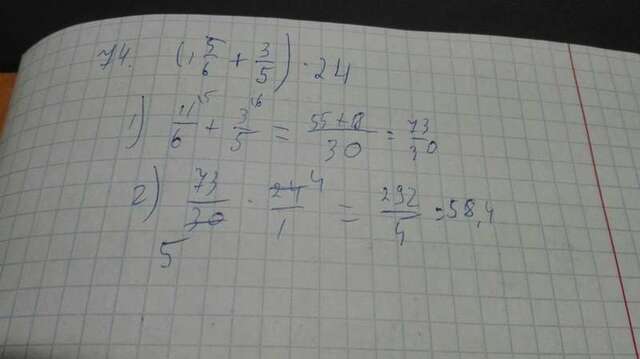 74. (1 5/6 + 3/5) · 24
1) 11/6 ⁵ + 3/5 ⁶ = 55+18/30 = 73/30
2) 73/30 · 24/1 ⁴ = 292/5 = 58,4
5